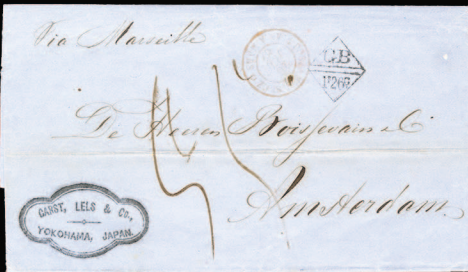 Via Marseille
GB
1F 60c
De Heeren Boissevain & Co
Amsterdam
GANST, LELS & Co.,
YOKOHAMA, JAPAN.